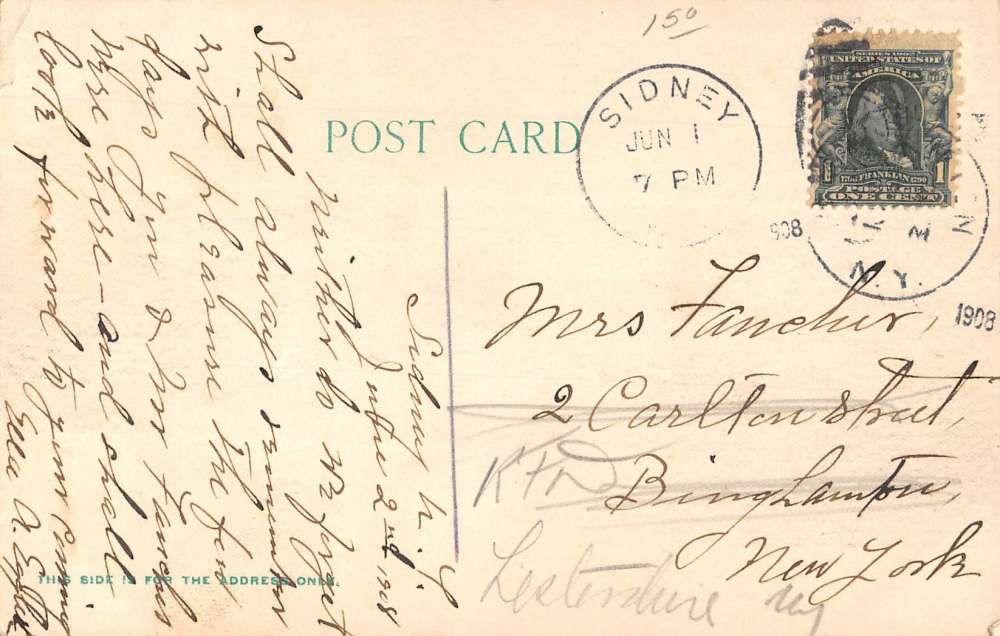 150
POST CARD
SIDNEY
JUN 1
7 PM
1908
SERIES 1902
UNITED STATES OF
AMERICA
FRANKLIN
POSTAGE
ONE CENT
1
N.Y.
1908
Sidney N.Y.
June 2nd 1908
Neither do we forget
Shall always remember
with pleasure the few
days you & Mr Fancher
were here - and shall
look forward to your coming
Ella A
Mrs Fancher,
2 Carlton Street,
Binghamton,
New York
RFD
Lestershire NY
THIS SIDE IS FOR THE ADDRESS ONLY.